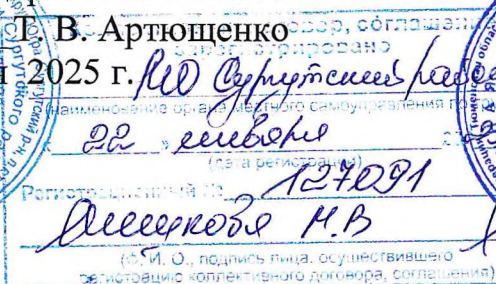 Т. В. Артющенко
договор, соглашение
зарегистрировано
2025 г.
МО Сургутский район
(наименование органа местного самоуправления по
22 " января
(дата регистрации)
Регистрационный № 127091
Н.В
(Ф. И. О., подпись лица, осуществившего
регистрацию коллективного договора, соглашения)